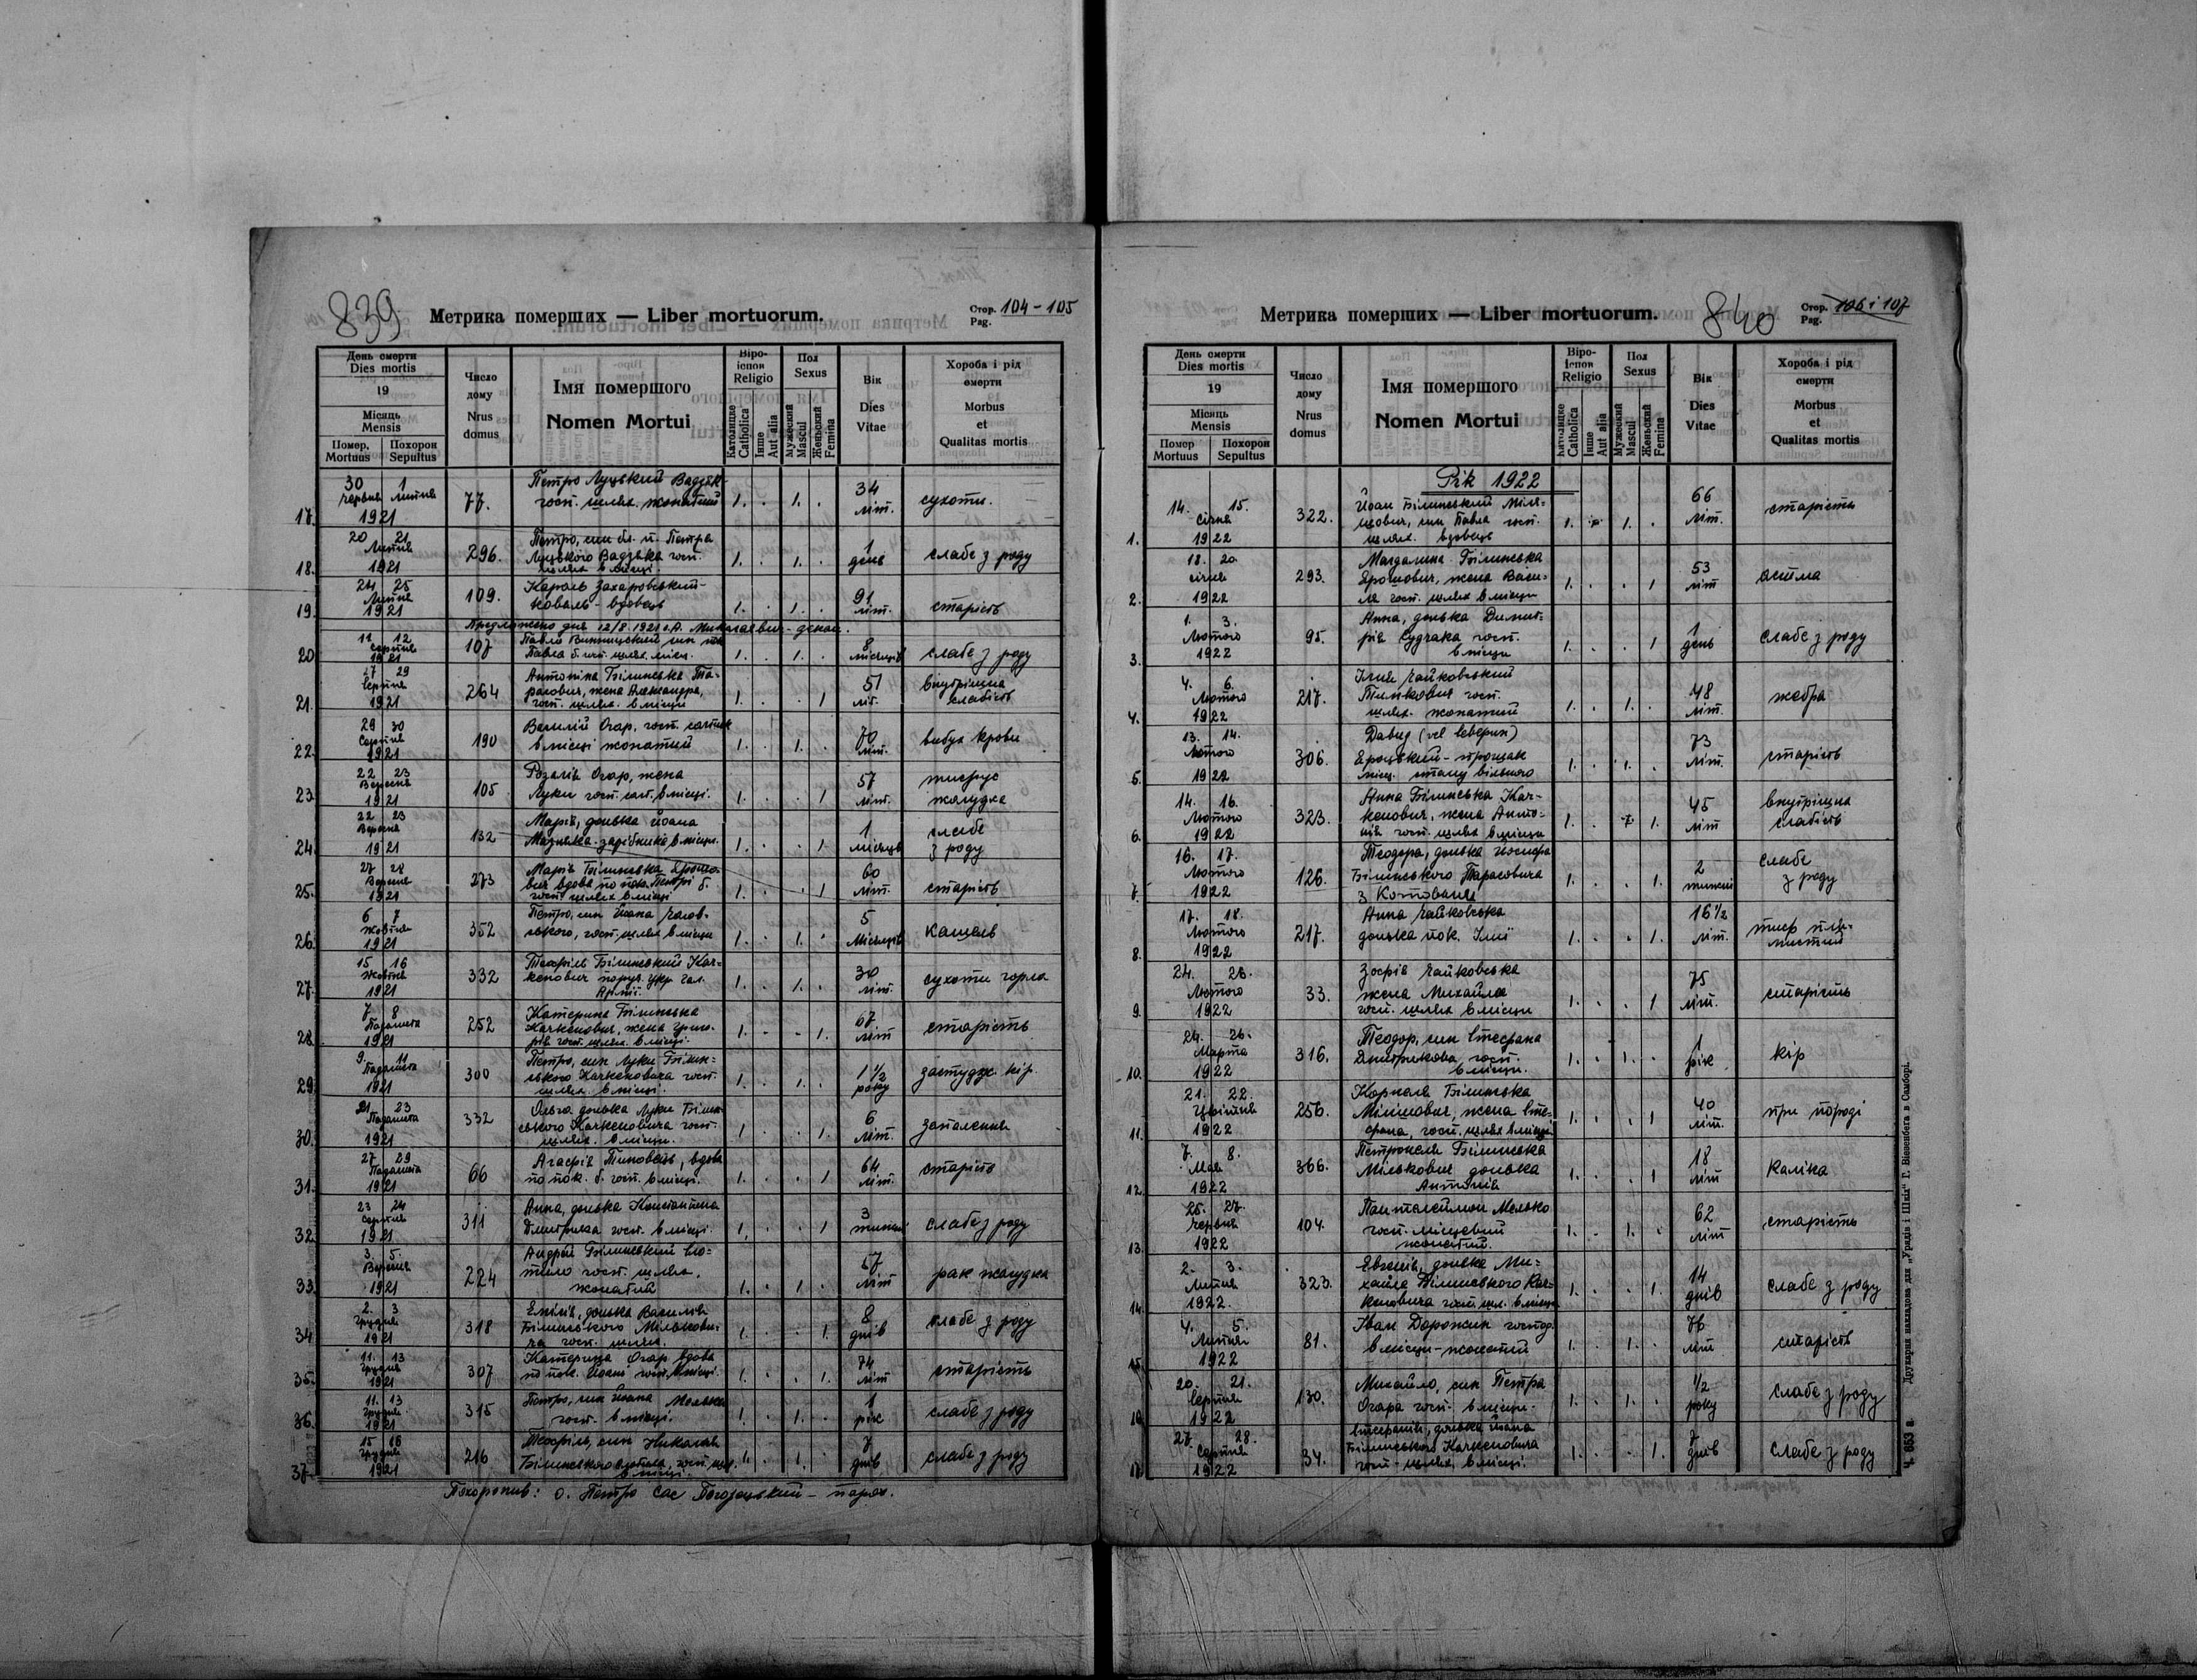 839
Метрика померших — Liber mortuorum.
Стор. 104-105
Pag.
День смерти
Dies mortis
19
Місяць
Mensis
Помер, Похорон
Mortuus Sepultus
Число
дому
Nrus
domus
Імя помершого
Nomen Mortui
Віро-
іспов
Religio
Католицке
Catholica
Інше
Aut alia
Пол
Sexus
Мужеский
Mascul
Женьский
Femina
Вік
Dies
Vitae
Хороба і рід
смерти
Morbus
et
Qualitas mortis
17. 30 червня 1 липня 1921 77. Петро Луцький Вадзяк
гост. шлях. жонатий 1. . 1. . 34 літ. сухоти.
18. 20 21 Липня 1921 296. Петро, син бл. п. Петра
Луцького Вадзяка гост.
шлях в місці. 1. . 1. . 1 день слабе з роду
19. 24 25 Липня 1921 109. Кароль Захаровський-
коваль - вдовець 1. . 1. . 91 літ. старість
Предложено дня 12/8 1921 о. А. Миколаєвич - декан.
20. 11 12 серпня 1921 107 Павло Винницький син
Павла б. гост. шлях. місц. 1. . 1. . 8 місяців слабе з роду
21. 27 29 серпня 1921 264 Антоніна Білинська Та-
расович, жена Александра,
гост. шлях. в місци 1. . . 1 51 літ. внутрішна
слабість
22. 29 30 Серпня 1921 190 Василій Огар, гост.
в місці жонатий 1. . 1. . 70 літ. вибух крови
23. 22 23 Вересня 1921 105 Розалія Огар, жена
Луки гост. в місці. 1. . . 1 57 літ. тифус
жолудка
24. 22 23 Вересня 1921 132 Марія, донька Йоана
зарібника в місци. 1. . . 1 1 місяць слабе
з роду
25. 27 28 Вересня 1921 273 Марія Білинська Ярошо-
вич вдова по пок. Петрі б.
гост шлях в місці 1. . . 1 60 літ. старість
26. 6 7 Жовтня 1921 352 Петро, син Йоана
ського, гост. шлях в місци 1. . 1. . 5 Місяців кашель
27. 15 16 Жовтня 1921 332 Теофіль Білинський Кач-
кенович поруч. Укр. Гал.
Армії. 1. . 1. . 30 літ. сухоти горла
28. 7 8 Падолиста 1921 252 Катерина Білинська
Качкенович, жена Григо-
рія гост. шлях. в місці. 1. . . 1. 67 літ старість
29. 9. 11 Падолиста 1921 300 Петро, син Луки Білин-
ського Качкеновича гост.
шлях. в місці. 1. . 1. . 1 1/2 року застудж. кір.
30. 21 23 Падолиста 1921 332 Ольга донька Луки Білин-
ського Качкеновича гост.
шлях. в місци. 1 . . 1. 6 літ. запалення
31. 27 29 Падолиста 1921 66 Агафія Тиновець, вдова
по пок. б. гост. в місці. 1. . . 1 64 літ. старість
32. 23 24 Серпня 1921 311 Анна, донька Константина
Дмитрика гост. в місці. 1. . . 1 3 тижні слабе з роду
33. 3. 5. Вересня 1921 224 Андрій Білинський
гост. шлях.
жонатий 1. . 1 . 67 літ рак жолудка
34. 2. 3 Грудня 1921 318 Емілія, донька Василія
Білинського Мількови-
ча гост. шлях. 1. . . 1. 8 днів слабе з роду
35. 11. 13 Грудня 1921 307 Катерина Огар вдова
по пок. Йоані гост. в місці. 1. . . 1. 74 літ старість
36. 11. 13 Грудня 1921 315 Петро, син Йоана Мелька
гост. в місці. 1. . 1. . 1 рік слабе з роду
37. 15 16 Грудня 1921 216 Теофіль, син Николая
Білинського гост. шл.
в місці. 1. . 1. . 7 днів слабе з роду
Похоронив: о. Петро Сас - парох.
Метрика померших — Liber mortuorum.
840
Стор. 106 і 107
Pag.
День смерти
Dies mortis
19
Місяць
Mensis
Помер Похорон
Mortuus Sepultus
Число
дому
Nrus
domus
Імя помершого
Nomen Mortui
Віро-
іспов
Religio
Католицке
Catholica
Інше
Aut alia
Пол
Sexus
Мужеский
Mascul
Женьский
Femina
Вік
Dies
Vitae
Хороба і рід
смерти
Morbus
et
Qualitas mortis
Рік 1922
1. 14. 15. січня 1922 322. Йоан Білинський
син Павла гост.
шлях. вдовець 1. . 1. . 66 літ. старість
2. 18. 20. січня 1922 293. Магдалина Білинська
Ярошович, жена Васи-
ля гост. шлях в місци 1. . . 1 53 літ астма
3. 1. 3. Лютого 1922 95. Анна, донька Димит-
рія Судчака гост.
в місци 1. . . 1 1 день слабе з роду
4. 4. 6. Лютого 1922 217. Ілия Чайковський
гост.
шлях. жонатий 1. . 1. . 48 літ. жебра
5. 13. 14. Лютого 1922 306. Давид (vel Северин)
Яроцький-
місц. стану вільного 1. . 1. . 73 літ. старість
6. 14. 16. Лютого 1922 323. Анна Білинська Кач-
кенович, жена Анто-
нія гост. шлях в місци 1. . 1. 45 літ внутрішна
слабість
7. 16. 17. Лютого 1922 126. Теодора, донька Йосифа
Білинського Тарасовича
з 1. . . 1. 2 тижні слабе
з роду
8. 17. 18. Лютого 1922 217. Анна Чайковська
донька пок. Ілії 1. . . 1. 16 1/2 літ. тиф пля-
мистий
9. 24. 26. Лютого 1922 33. Зофія Чайковська
жена Михайла
гост. шлях в місци 1. . . 1 75 літ. старість
10. 24. 26. Марта 1922 316. Теодор, син Стефана
Дмитрикова, гост.
в місци. 1. . 1. . 1 рік кір
11. 21. 22. Цвітня 1922 256. Корнеля Білинська
жена Сте-
фана, гост. шлях в місци 1. . . 1 40 літ. при породі
12. 7. 8. Мая 1922 366. Петронеля Білинська
Мількович донька
Антонія 1. . . 1 18 літ каліка
13. 25. 27. Червня 1922 104. Панталеймон Мелько
гост. місцевий
жонатий. 1. . 1. . 62 літ старість
14. 2. 3. Липня 1922. 323. Евгенія, донька Ми-
хайла Білинського Кач-
кеновича гост. шл. в місци 1. . . 1. 14 днів слабе з роду
15. 4. 5. Липня 1922 81. Іван Дорожик господ.
в місци - жонатий 1. . 1. . 76 літ старість
16. 20. 21. Серпня 1922 130. Михайло, син Петра
Огара гост. в місци. 1. . 1. . 1/2 року слабе з роду
17. 27. 28. Серпня 1922 34. Стефанія, донька Йоана
Білинського Качкеновича
гост. шлях. в місці. 1. . . 1. 7 днів слабе з роду
Ч. 853 а Друкарня накладова для „Урядів і Шкіл“ Г. Вісенберґа в Самборі.